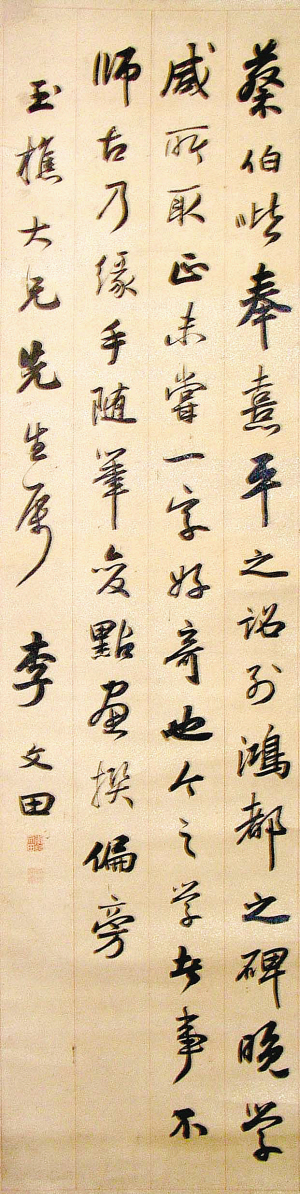 蔡伯喈奉熹平之詔列鴻都之碑晚学
咸所取正未嘗一字好奇也今之学者事不
师古乃缘手随筆变點畫撰偏旁
玉樵大兄先生属 李文田